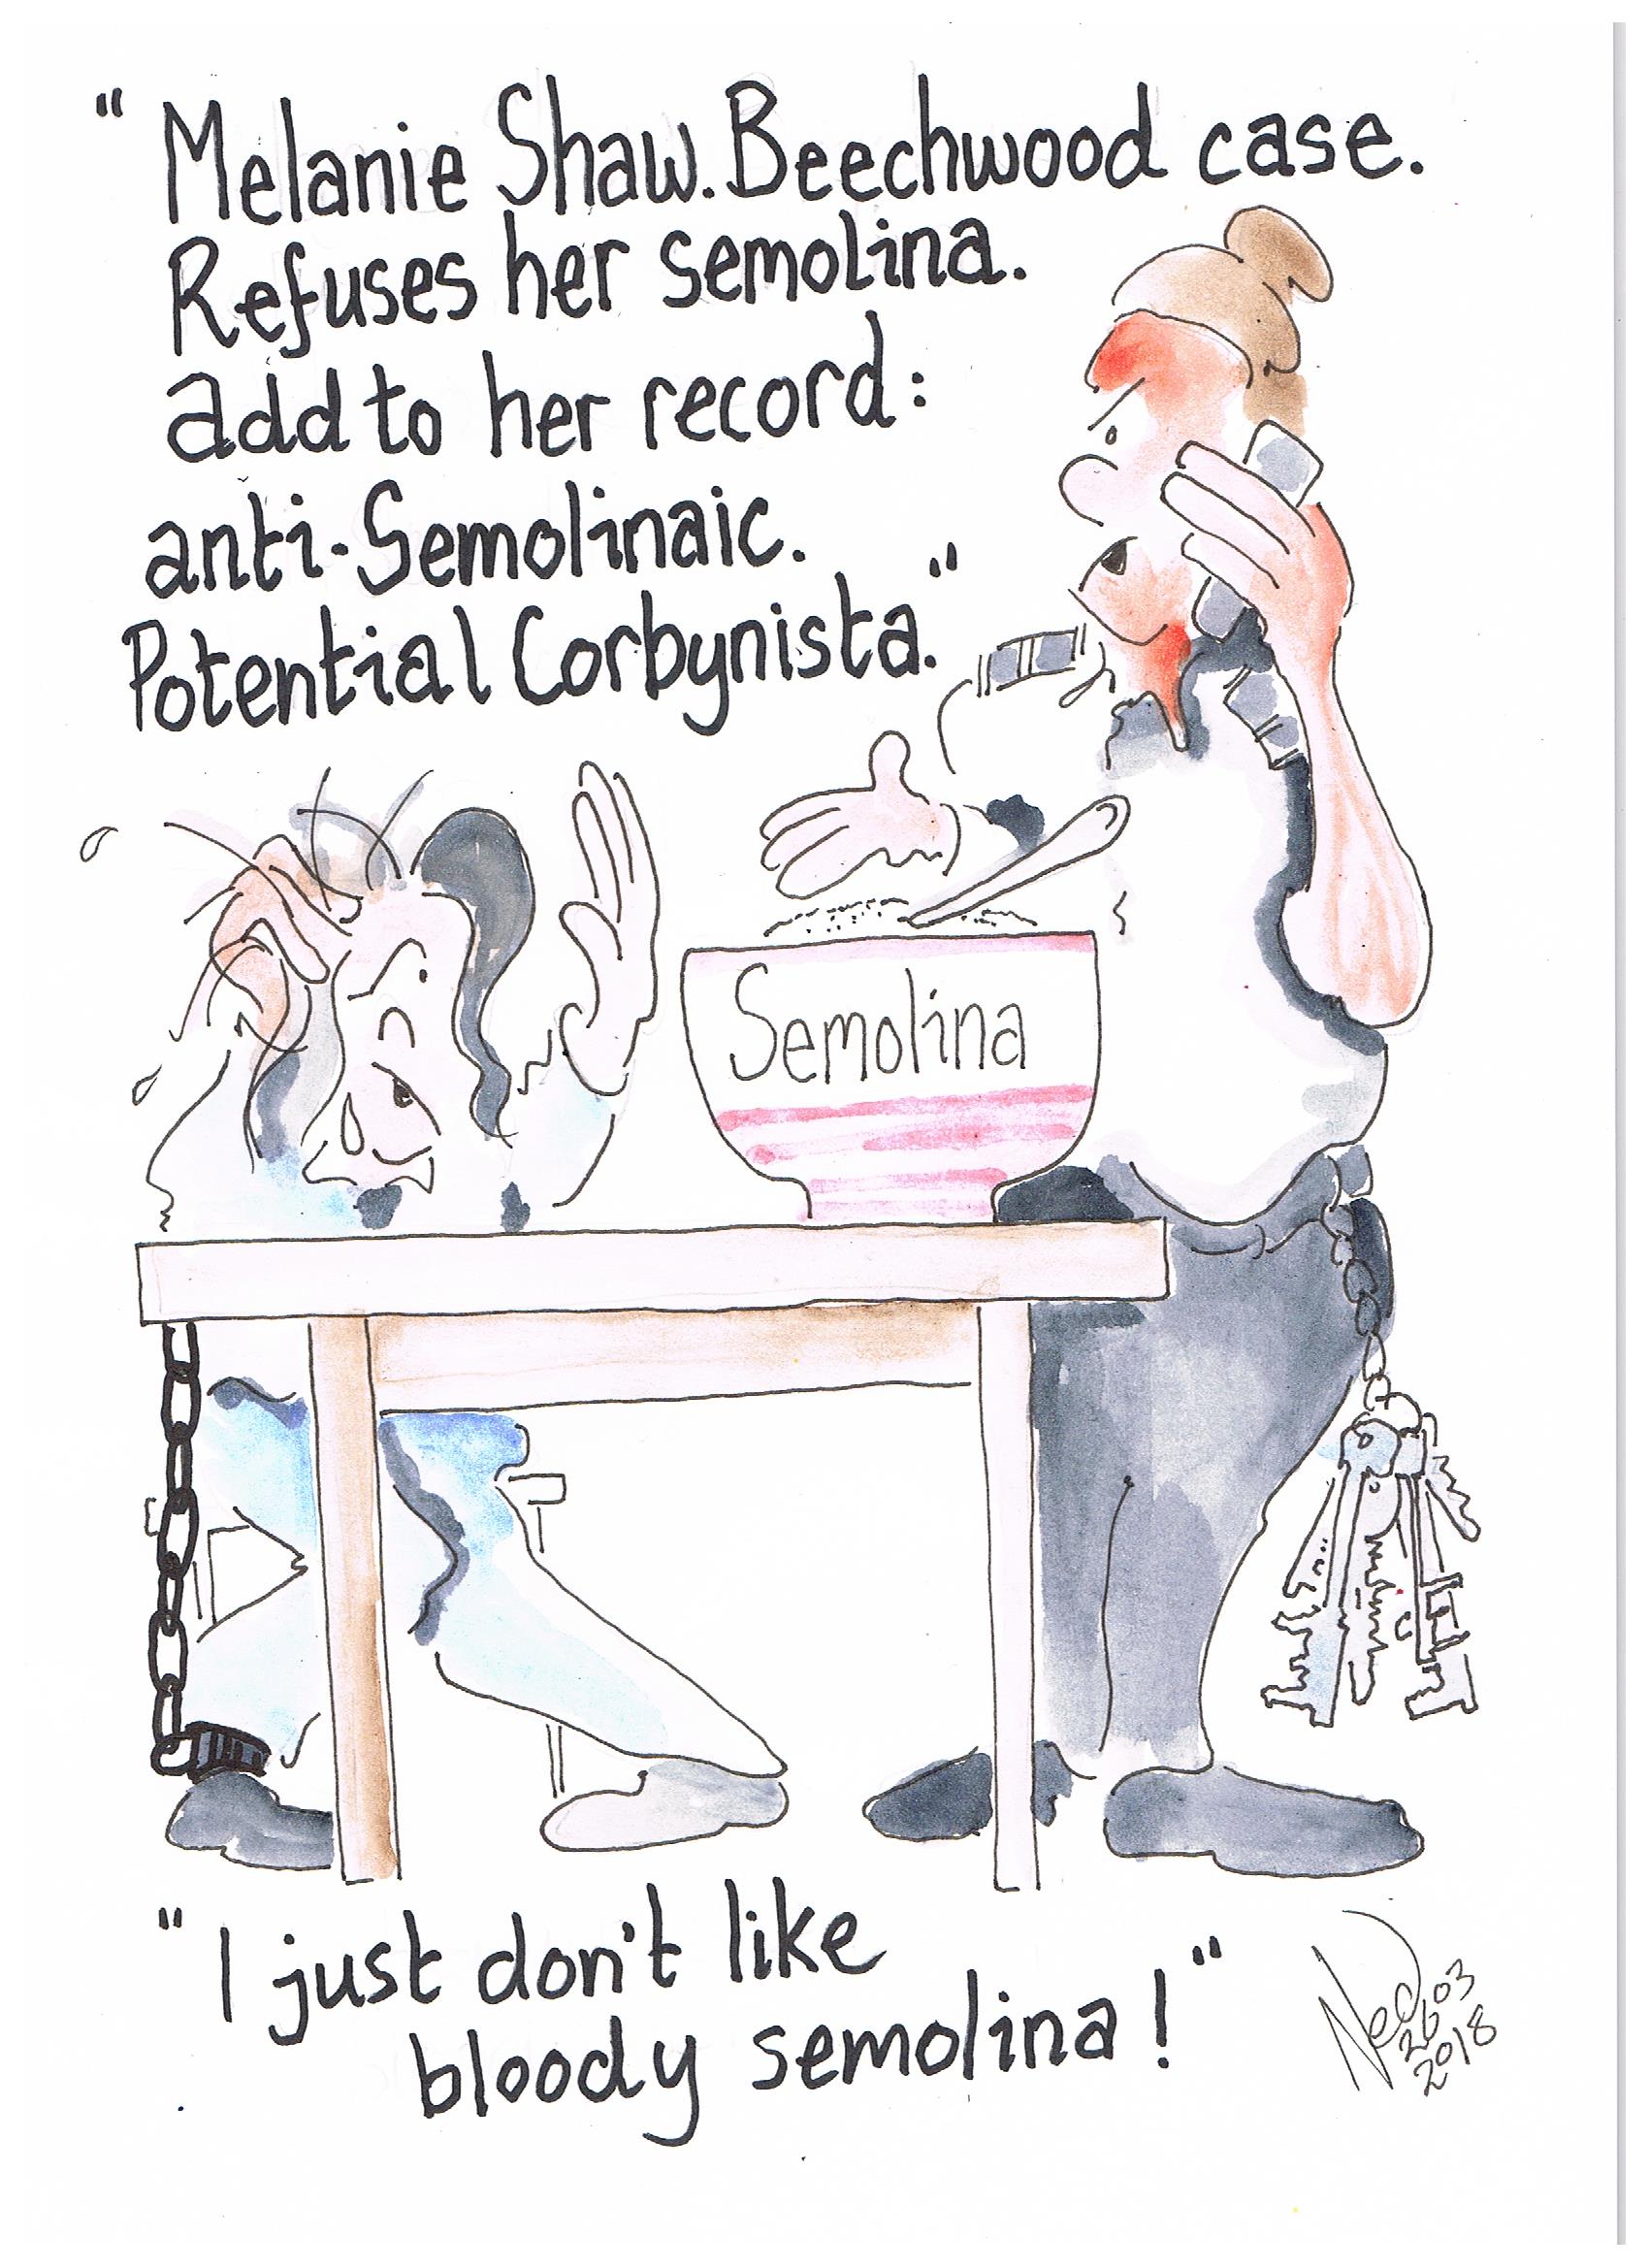 " Melanie Shaw. Beechwood case.
Refuses her semolina.
add to her record:
anti-Semolinaic.
Potential Corbynista."
Semolina
" I just don't like
bloody semolina! "
Ned
26 03
2018